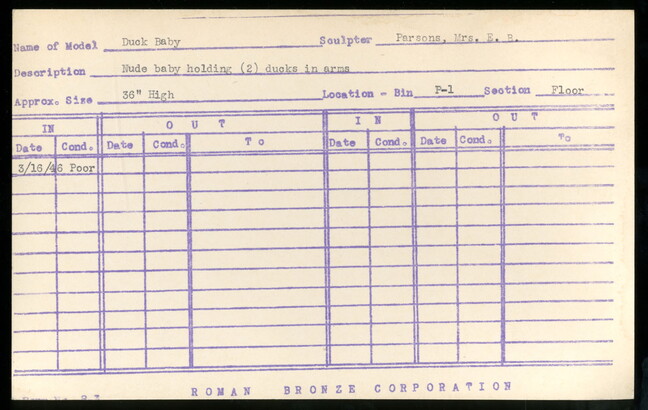 Name of Model Duck Baby Sculptor Parsons, Mrs. E. B.
Description Nude baby holding (2) ducks in arms
Approx. Size 36" High Location - Bin F-1 Section Floor
IN OUT IN OUT
Date Cond. Date Cond. To Date Cond. Date Cond. To
3/16/46 Poor
ROMAN BRONZE CORPORATION